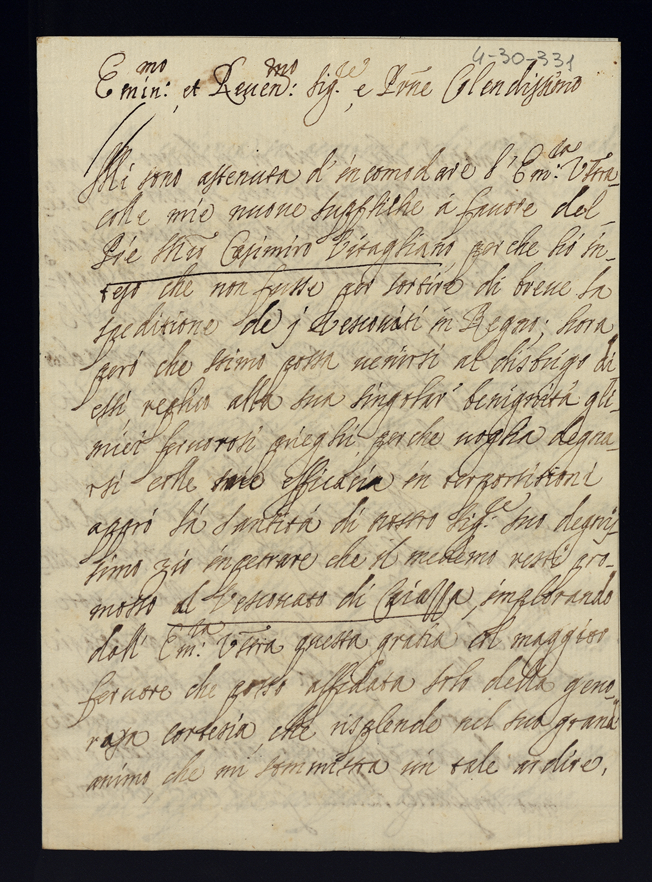 4-30-331
Emin:mo et Reuen:mo Sig:re e Prne Colendissimo
Mi sono astenuta d'incomodare l'Em:za Vtra
colle mie nuoue suppliche à fauore del
Pre Mro Casimiro Vitagliano perche hò in-
teso che non fusse per sortire di breue la
speditione de j Vescouati in Regno; hora
però che stimo possa uenirsi al disbrigo di
essi replico alla sua singolar benignità gli
miei feruorosi prieghi, perche uoglia degna-
rsi colle sue efficacia in
appò la Santità di nostro Sig:re suo degnis-
simo zio impetrare che il medemo resti pro-
mosso al Vescouato di Caiazza implorando
dall' Em:za Vtra questa gratia col maggior
feruore che posso affidata solo della gene-
rosa cortesia che risplende nel suo grand'
animo, che mi somministra un tale ardire,